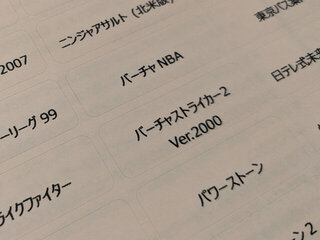 2007
ニンジャアサルト（北米版）
東京バス案
ーリーグ 99
バーチャ NBA
日テレ式未来
ライクファイター
バーチャストライカー2
Ver.2000
パワーストーン
ーン 2